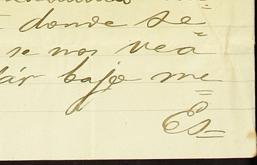 donde se=
se nos vea
tár bajo me=
Es=